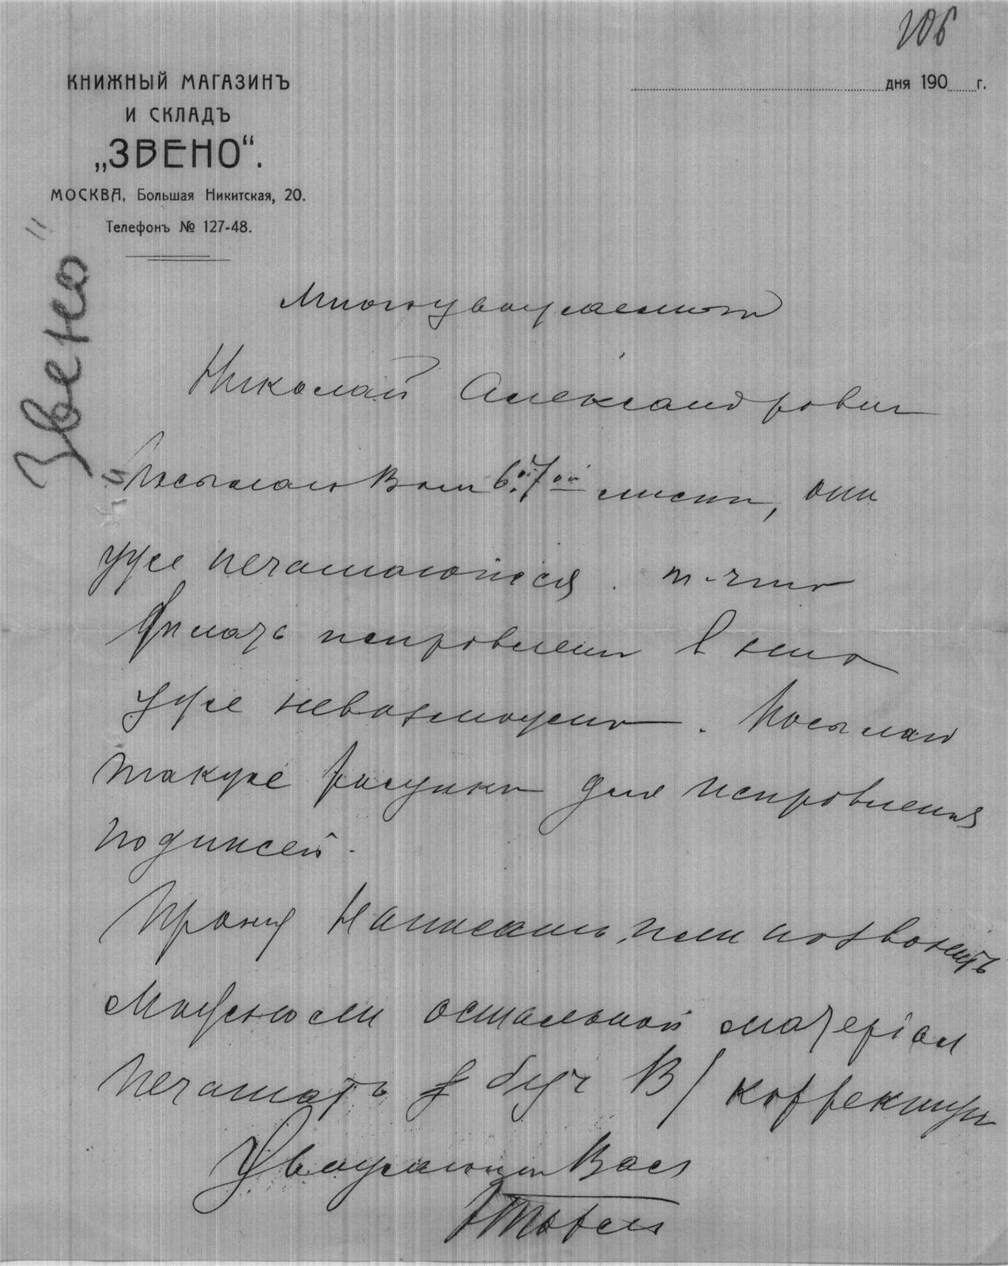 106
КНИЖНЫЙ МАГАЗИНЪ
И СКЛАДЪ
„ЗВЕНО“.
МОСКВА, Большая Никитская, 20.
Телефонъ № 127-48.
дня 190 г.
"Звено"
Многоуважаемый
Николай Александрович
Посылаю Вам 6ой 7ой листы, они
уже печатаются. т-что
делать исправления в них
уже невозможно. Посылаю
также рисунки для исправления
подписей.
Прошу написать или позвонить
Можно ли остальной матерiал
печатать без В/ корректуры
Уважающий Вас